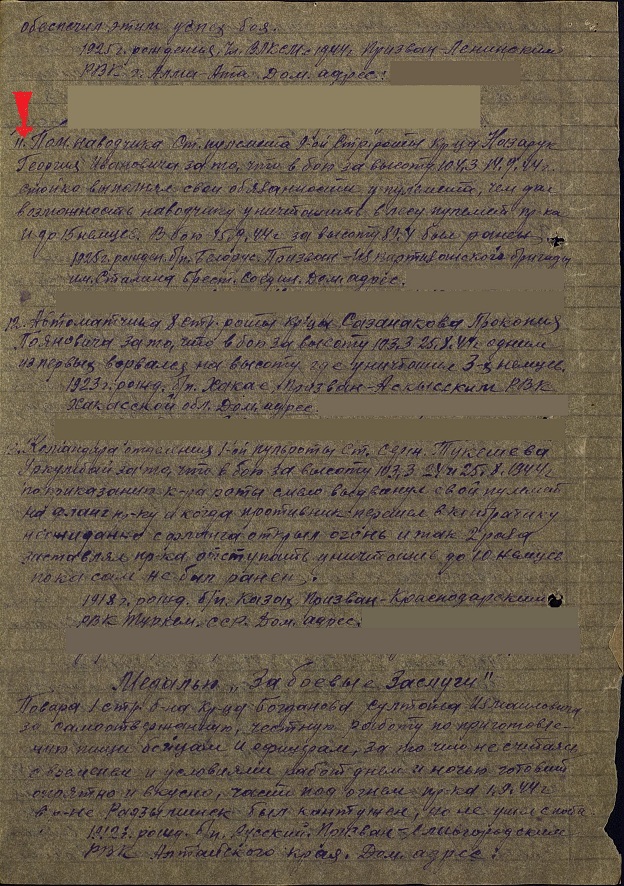 обеспечил этим успех боя.
1925 г. рождения, чл. ВЛКСМ с 1944 г. Призван - Ленинским
РВК г. Алма-Ата. Дом. адрес:
11. Пом. наводчика ст. пулемета 9-ой стр. роты кр-ца Назарук
Георгия Ивановича за то, что в бою за высоту 104,3 14.9.44 г.
стойко выполнял свои обязанности у пулемета, чем дал
возможность наводчику уничтожить в лесу пулемет пр-ка
и до 15 немцев. В бою 15.9.44 г. за высоту был ранен
рожден. б/п. Белорус. Призван - партизанской бригады
им. Сталина Брест. Соедин. Дом. адрес.
12. Автоматчика 8 стр. роты кр-ца Сазанакова Прокопия
за то, что в бою за высоту 103,3 25.8.44 г. одним
из первых ворвался на высоту где уничтожил 3-х немцев.
1923 г. рожд. б/п. Хакас. Призван - Аскызским РВК
Хакасской обл. Дом. адрес.
Командира отделения 1-ой пульроты ст. серж. Тукешева
за то, что в бою за высоту 103,3 24 и 25.8.1944 г.
по приказанию к-ра роты смело выдвинул свой пулемет
на фланг пр-ку а когда противник перешел в контратаку
неожиданно с фланга открыл огонь и так 2 раза
заставлял пр-ка отступить уничтожив до 10 немцев
пока сам не был ранен.
1918 г. рожд. б/п. Казах Призван - Краснодарским
РВК Туркм. ССР. Дом. адрес:
Медалью „За боевые Заслуги"
Повара 1 стр. б-на кр-ца Султона Измаиловича
за самоотверженную, честную работу по приготовле-
нию пищи бойцам и офицерам, за то что не считаясь
с временем и условиями работ днем и ночью готовит
опрятно и вкусно, часто под огнем пр-ка 1.9.44 г.
в р-не был контужен, но не ушел с поля
рожд. б/п. Русский. Призван -
РВК Алтайского края. Дом. адрес: